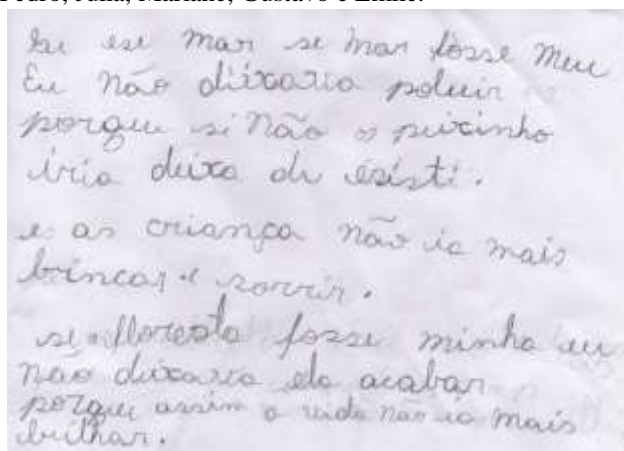 Pedro, Julia, Mariane, Gustavo e
Si esi mar se mar fosse meu
Eu não diixaria poluir
porque si não o peixinho
iria deixa de esisti.
e as criança não ia mais
brincar e sorrir.
si a floresta fosse minha eu
não dixaria ela acabar
porque assim a vida nao ia mais
brilhar.